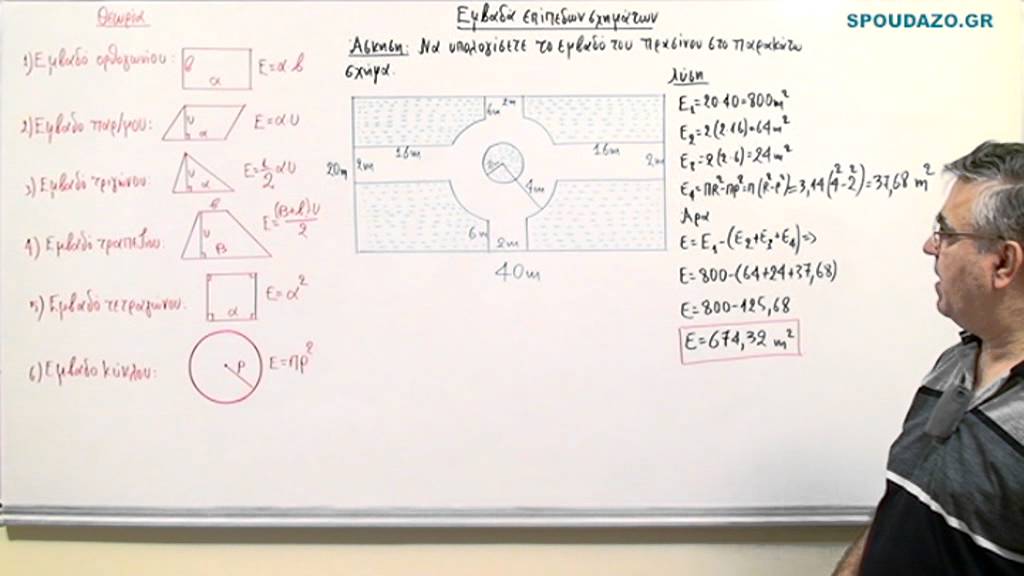 SPOUDAZO.GR
Θεωρία
1) Εμβαδό ορθογωνίου: β α Ε=αβ
2) Εμβαδό παρ/μου: υ α Ε=αυ
3) Εμβαδό τριγώνου: υ α Ε=1/2 αυ
4) Εμβαδό τραπεζίου: β υ Β Ε=(Β+β)υ/2
5) Εμβαδό τετραγώνου: α Ε=α²
6) Εμβαδό κύκλου: ρ Ε=πρ²
Εμβαδά επίπεδων σχημάτων
Άσκηση: Να υπολογίσετε το εμβαδό του πρασίνου στο παρακάτω
σχήμα.
6m 2m
16m 16m
20m 2m 2m
4m
6m
2m
40m
λύση
Ε₁=20·40=800m²
Ε₂=2(2·16)=64m²
Ε₃=2(2·6)=24m²
Ε₄=πR²-πρ²=π(R²-ρ²)=3,14(4²-2²)=37,68 m²
Άρα
Ε=Ε₁-(Ε₂+Ε₃+Ε₄)=>
Ε=800-(64+24+37,68)
Ε=800-125,68
Ε=674,32 m²